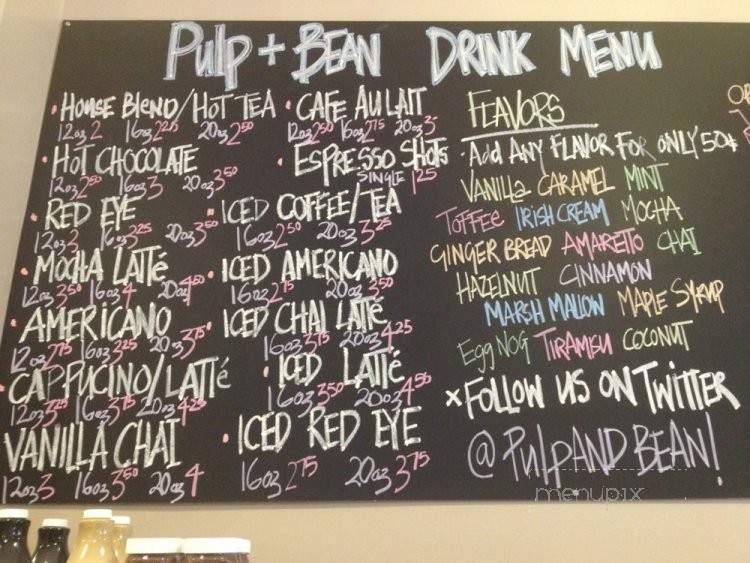 Pulp + Bean Drink Menu
House Blend/Hot Tea
12oz 2 16oz 2.25 20oz 2.50
Hot Chocolate
12oz 2.50 16oz 3 20oz 3.50
Red Eye
12oz 3 16oz 3.25 20oz 3.50
Mocha Latté
12oz 3.50 16oz 4 20oz 4.50
Americano
12oz 2.75 16oz 3.25 20oz 3.75
Cappucino/Latté
12oz 3.25 16oz 3.75 20oz 4.25
Vanilla Chai
12oz 3 16oz 3.50 20oz 4
Cafe Au Lait
12oz 2.50 16oz 2.75 20oz 3
Espresso Shots
Single 1.25
Iced Coffee/Tea
16oz 2.50 20oz 3.25
Iced Americano
16oz 2.75 20oz 3.50
Iced Chai Latté
16oz 3.75 20oz 4.25
Iced Latté
16oz 3.50 20oz 4.50
Iced Red Eye
16oz 2.75 20oz 3.75
Flavors
Add Any Flavor For Only 50¢
Vanilla Caramel Mint
Toffee Irish Cream Mocha
Ginger Bread Amaretto Chai
Hazelnut Cinnamon
Marsh Mallow Maple Syrup
Egg Nog Tiramisu Coconut
x Follow us on Twitter
@PulpandBean!
menupix